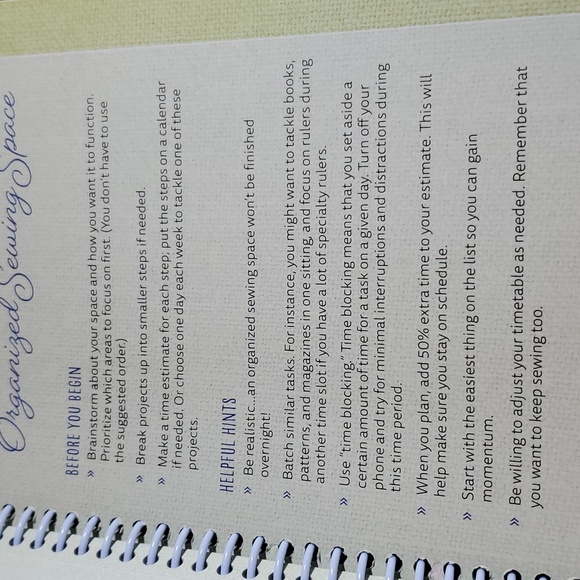 Organized Sewing Space
BEFORE YOU BEGIN
» Brainstorm about your space and how you want it to function.
Prioritize which areas to focus on first. (You don't have to use
the suggested order.)
» Break projects up into smaller steps if needed.
» Make a time estimate for each step; put the steps on a calendar
if needed. Or choose one day each week to tackle one of these
projects.
HELPFUL HINTS
» Be realistic...an organized sewing space won't be finished
overnight!
» Batch similar tasks. For instance, you might want to tackle books,
patterns, and magazines in one sitting, and focus on rulers during
another time slot if you have a lot of specialty rulers.
» Use "time blocking." Time blocking means that you set aside a
certain amount of time for a task on a given day. Turn off your
phone and try for minimal interruptions and distractions during
this time period.
» When you plan, add 50% extra time to your estimate. This will
help make sure you stay on schedule.
» Start with the easiest thing on the list so you can gain
momentum.
» Be willing to adjust your timetable as needed. Remember that
you want to keep sewing too.